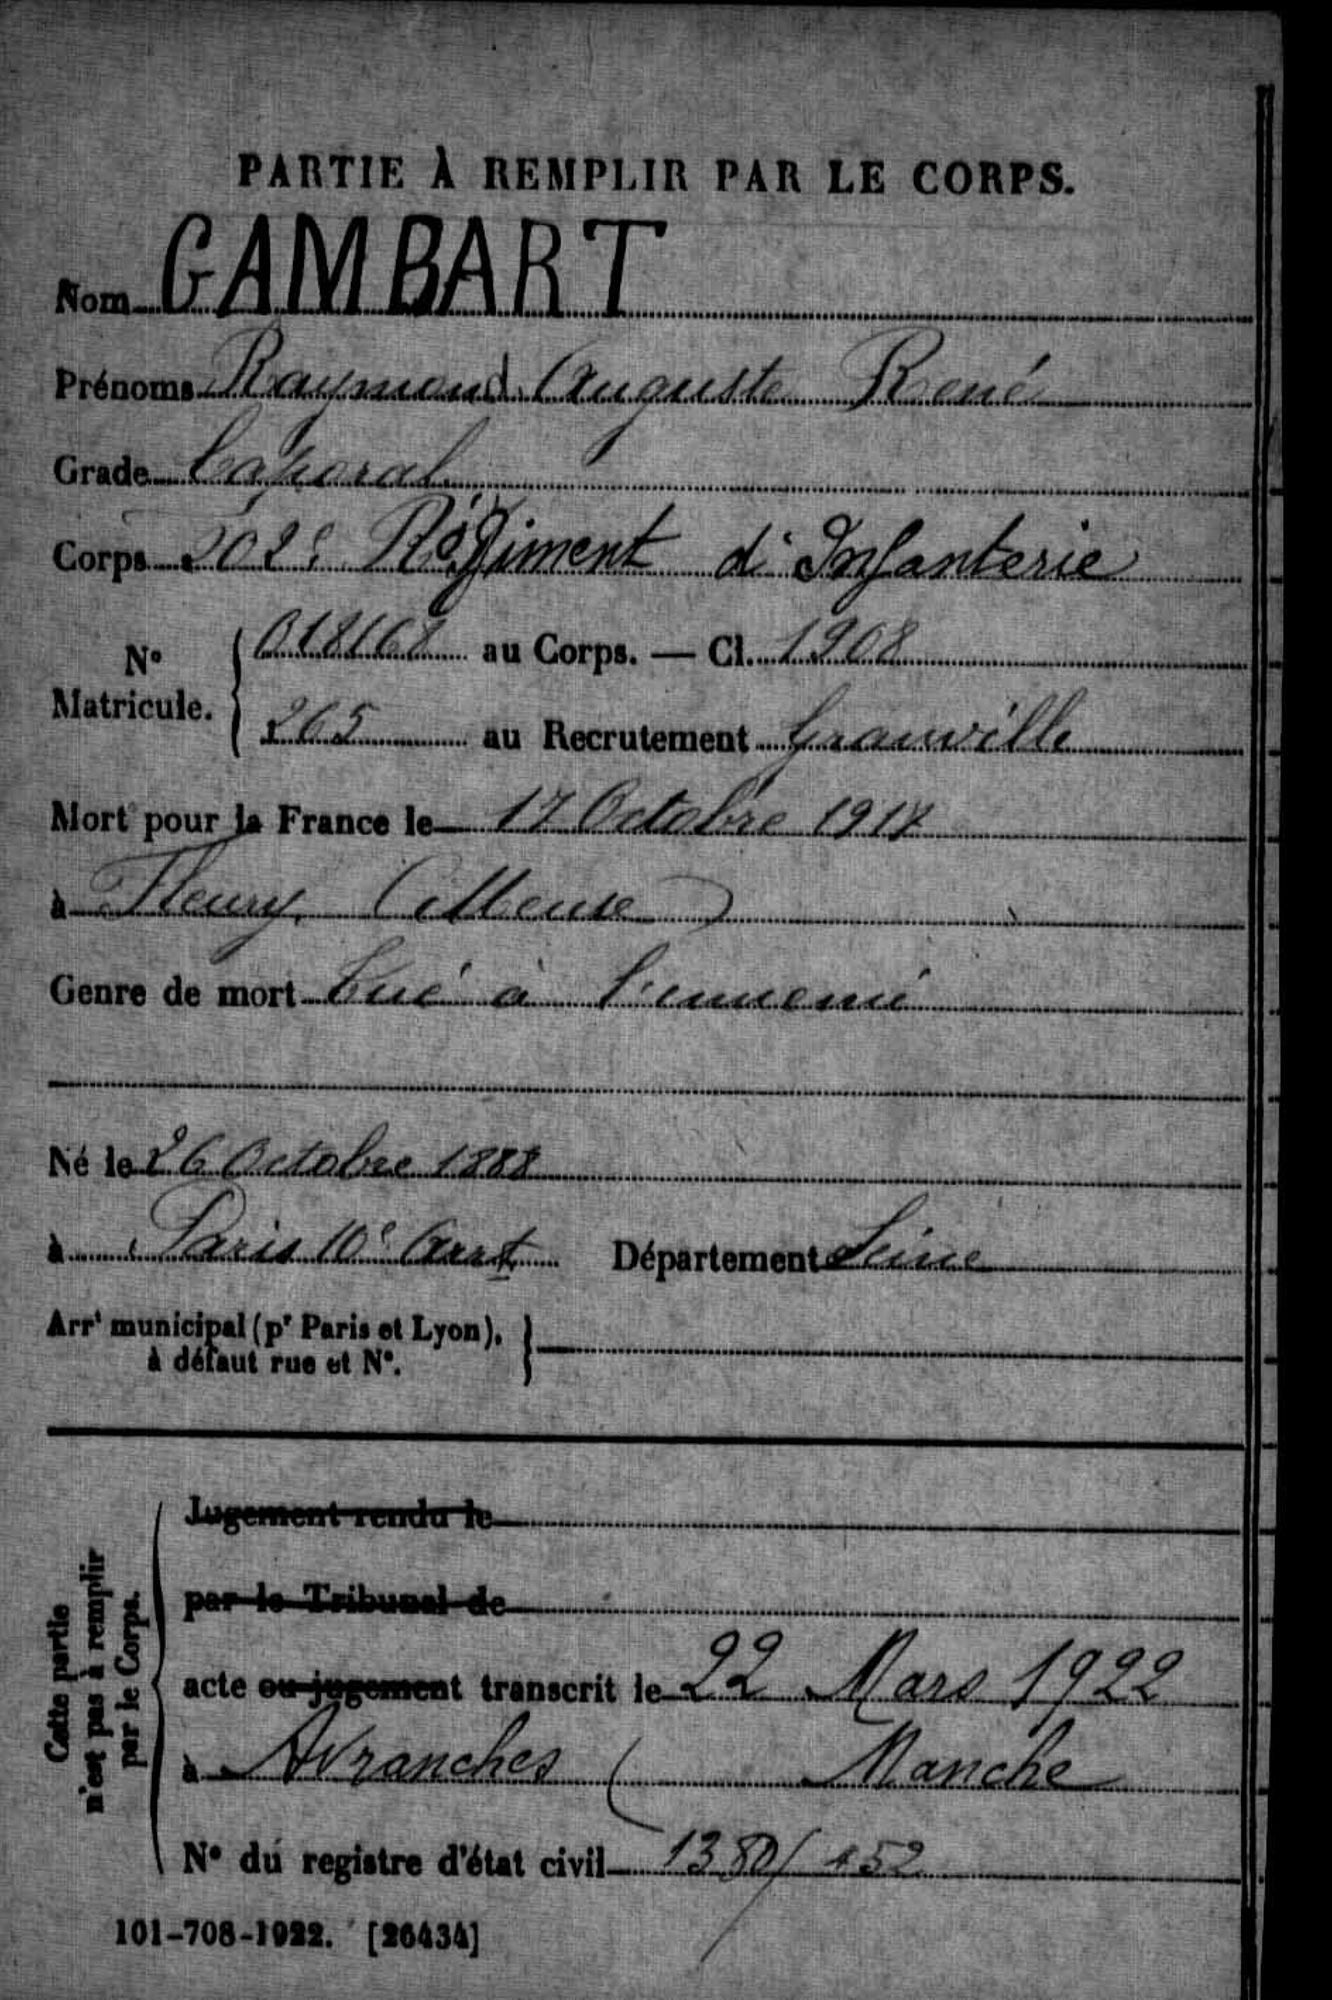 PARTIE À REMPLIR PAR LE CORPS.
Nom GAMBART
Prénoms Raymond Auguste René
Grade Caporal
Corps 202e Régiment d'Infanterie
No Matricule. { 018168 au Corps. — Cl. 1908
265 au Recrutement Granville
Mort pour la France le 17 Octobre 1917
à Fleury (Meuse)
Genre de mort Tué à l'ennemi
Né le 26 Octobre 1888
à Paris 10e Arrt Département Seine
Arrt municipal (pr Paris et Lyon),
à défaut rue et No.
Cette partie
n'est pas à remplir
par le Corps.
Jugement rendu le
par le Tribunal de
acte ou jugement transcrit le 22 Mars 1922
à Avranches ( Manche
No du registre d'état civil 1380/152
101-708-1922. [26434]